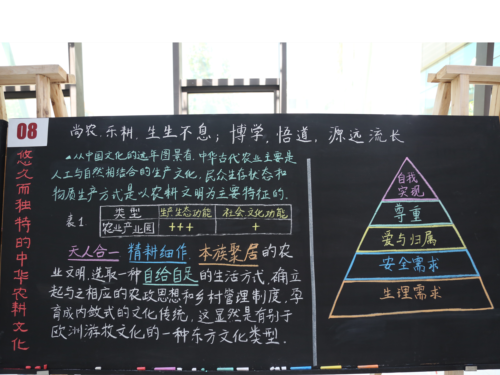 08
悠久而独特的中华农耕文化
尚农、乐耕，生生不息；博学，悟道，源远流长
从中国文化的选年图景看，中华古代农业主要是
人工与自然相结合的生产文化，民众生存状态和
物质生产方式是以农耕文明为主要特征的。
表1
类型 生产生态功能 社会文化功能
农业产业园 +++ +
天人合一 精耕细作 本族聚居的农
业文明，选取一种自给自足的生活方式，确立
起与之相应的农政思想和乡村管理制度，孕
育成内敛式的文化传统，这显然是有别于
欧洲游牧文化的一种东方文化类型．
自我
实现
尊重
爱与归属
安全需求
生理需求